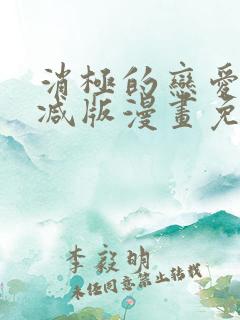 消極的戀愛
减版漫畫免
李毅明
未经同意禁止转载